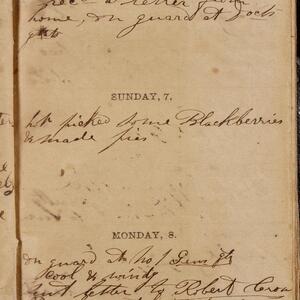 a letter from
home, on guard at Dock
gate
SUNDAY, 7.
picked some Blackberries
& made pies
MONDAY, 8.
on guard at No 1 Gens
cool & windy
sent letter by Robert